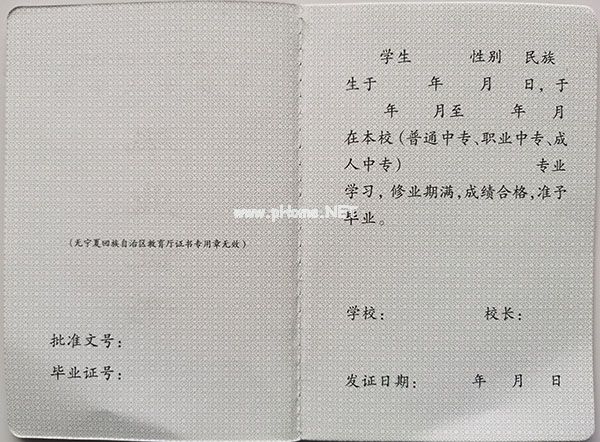 (无宁夏回族自治区教育厅证书专用章无效)
批准文号:
毕业证号:
学生 性别 民族
生于 年 月 日,于
年 月至 年 月
在本校(普通中专、职业中专、成
人中专) 专业
学习,修业期满,成绩合格,准予
毕业。
www.pHome.NET
学校: 校长:
发证日期: 年 月 日